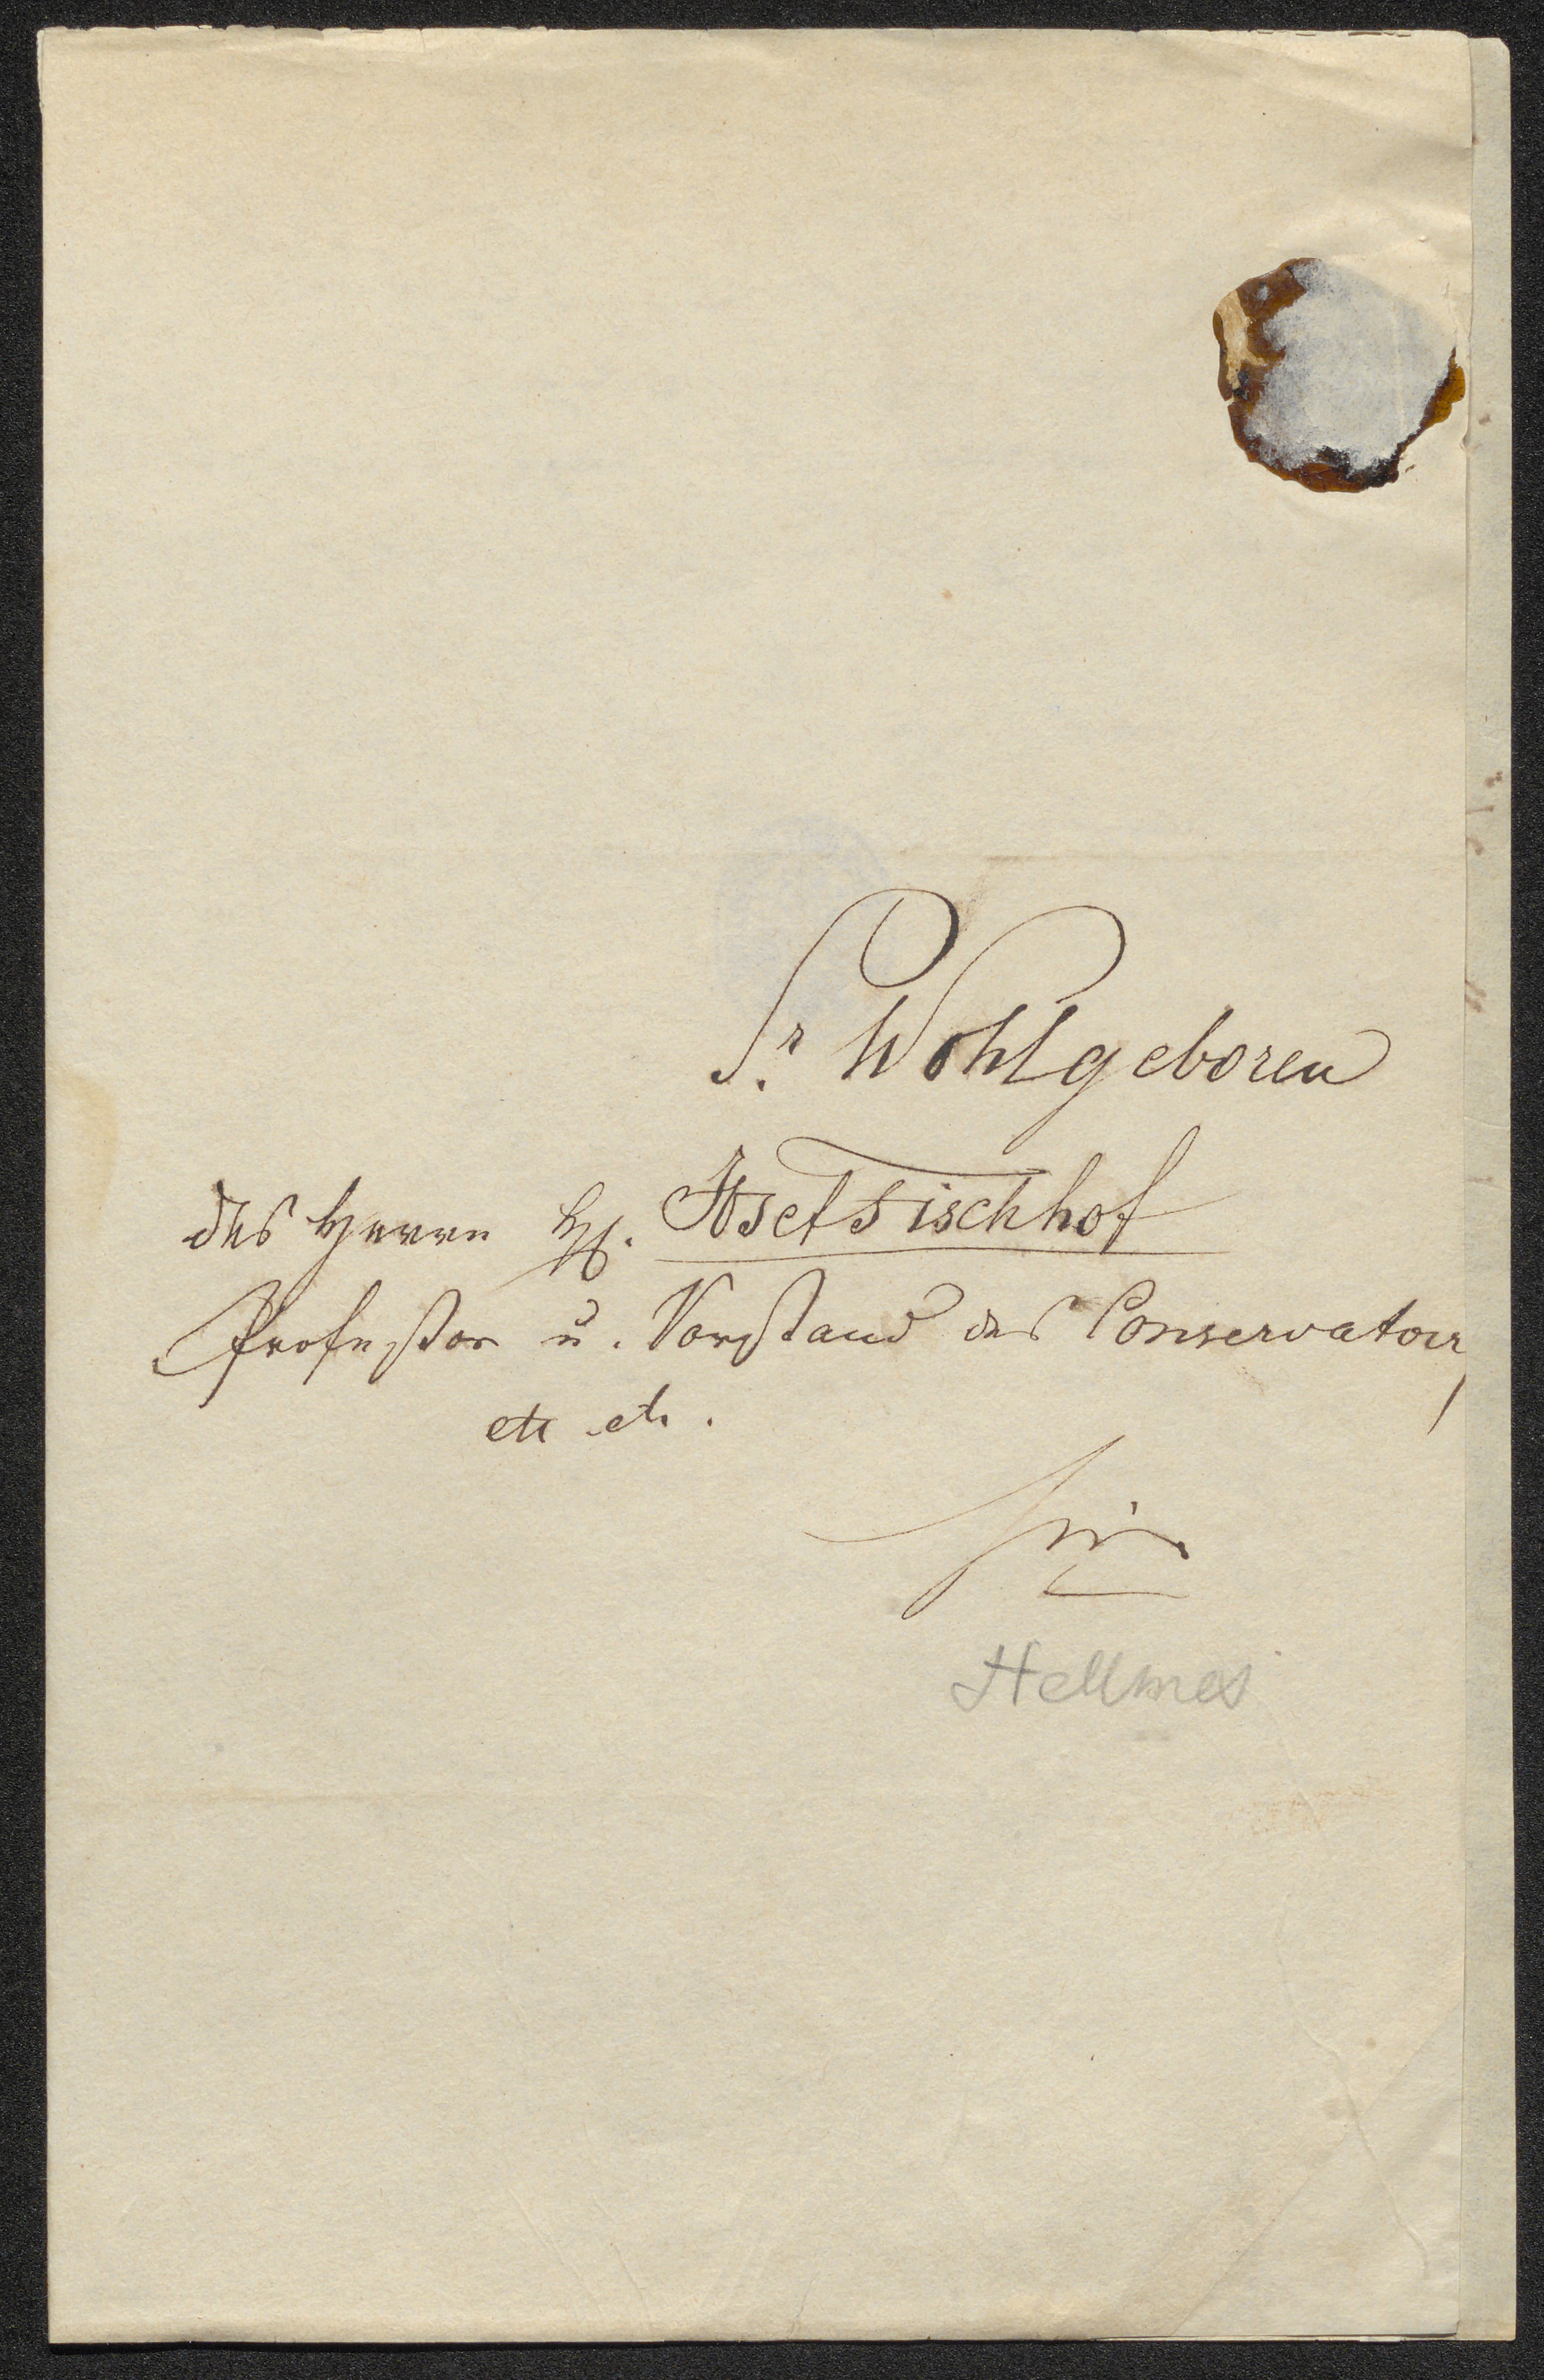 Sr. Wohlgeboren
des Herrn H. Josef Fischhof
Professor u. Vorstand des Conservator,
etc etc.
hier
Hellmes